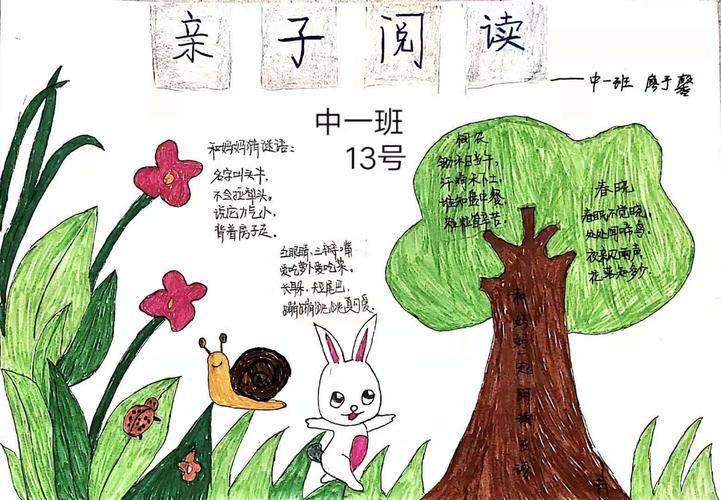 亲子阅读
——中一班 廖于馨
中一班
13号
和妈妈猜谜语：
名字叫头牛，
不会拉犁头。
说它力气小，
背着房子走。
红眼睛，三瓣嘴
爱吃萝卜爱吃菜。
长耳朵，短尾巴，
蹦蹦跳跳真可爱。
悯农
锄禾日当午，
汗滴禾下土。
谁知盘中餐，
粒粒皆辛苦。
春晓
春眠不觉晓，
处处闻啼鸟。
夜来风雨声，
花落知多少。
和妈妈一起朗诵古诗